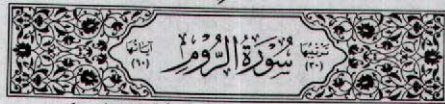 ترتيبها (٣٠) سُورَةُ الرُّومِ آياتها (٦٠)